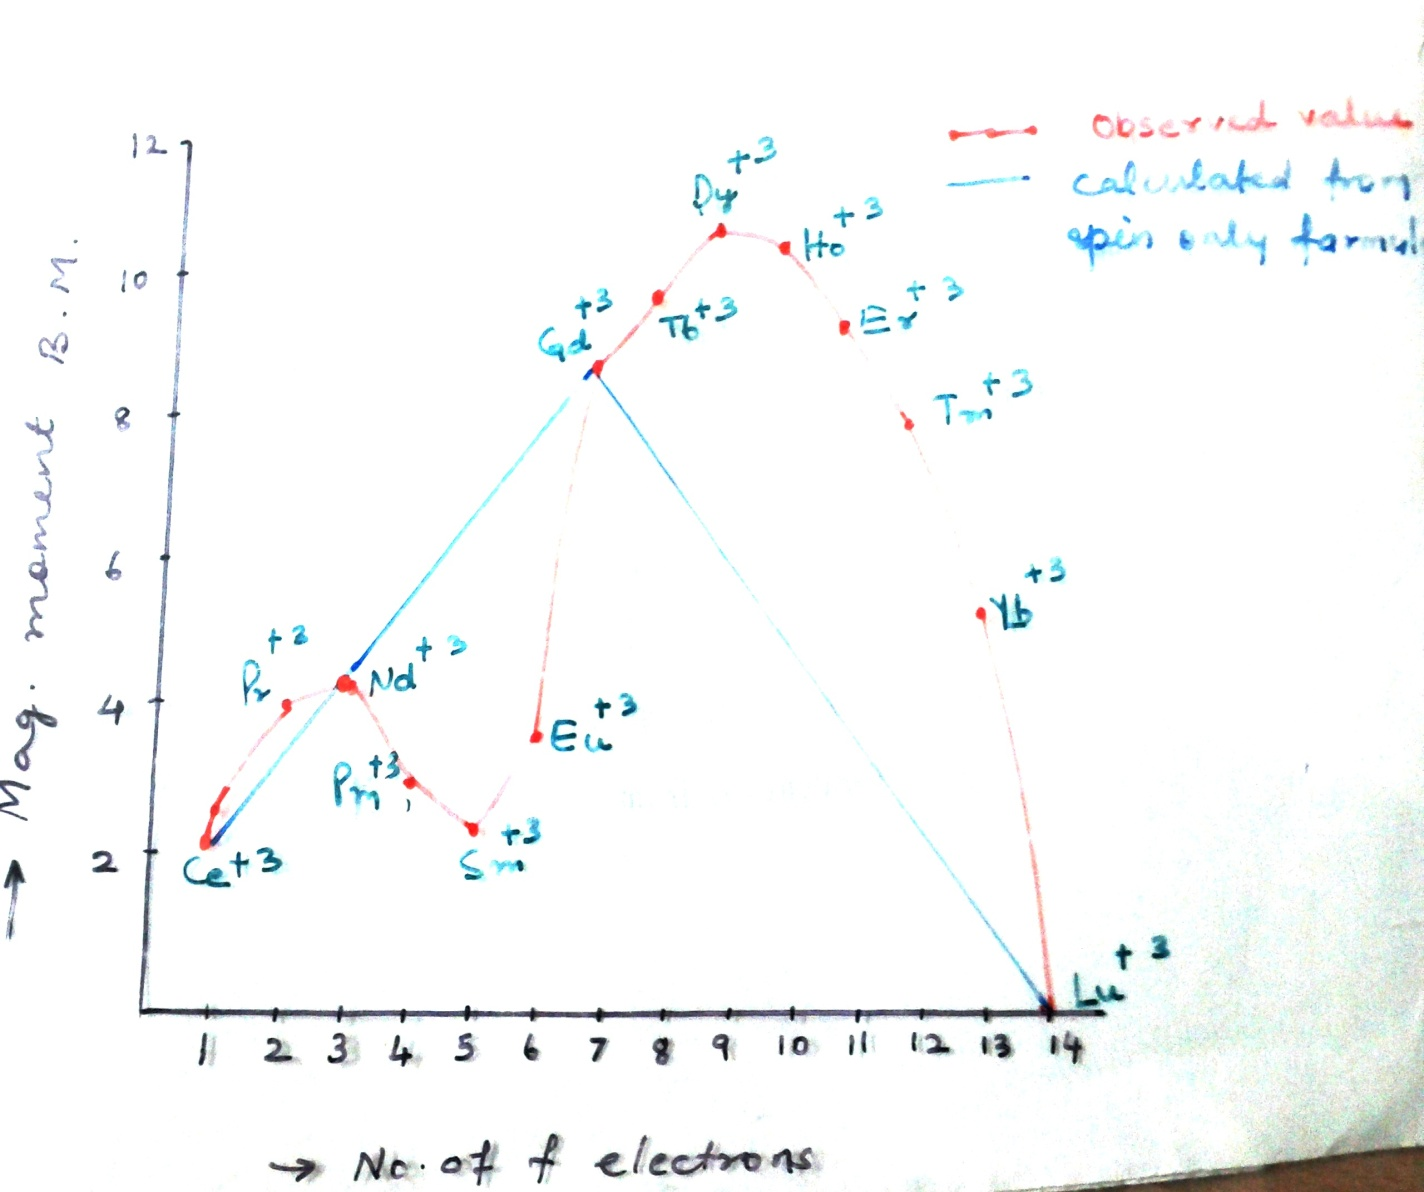 Observed value
calculated from
spin only formul
12
10
8
6
4
2
→ Mag. moment B.M.
Dy+3
Ho+3
Gd+3
Tb+3
Er+3
Tm+3
Yb+3
Pr+3
Nd+3
Eu+3
Pm+3
Sm+3
Ce+3
Lu+3
1 2 3 4 5 6 7 8 9 10 11 12 13 14
→ No. of f electrons